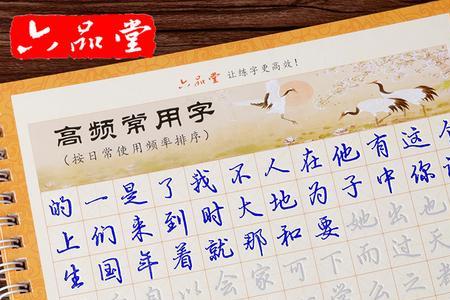 六品堂
六品堂 让练字更高效！
高频常用字
（按日常使用频率排序）
的一是了我不人在他有这
上们来到时大地为子中你
生国年着就那和要她出也
以会家可下而过天